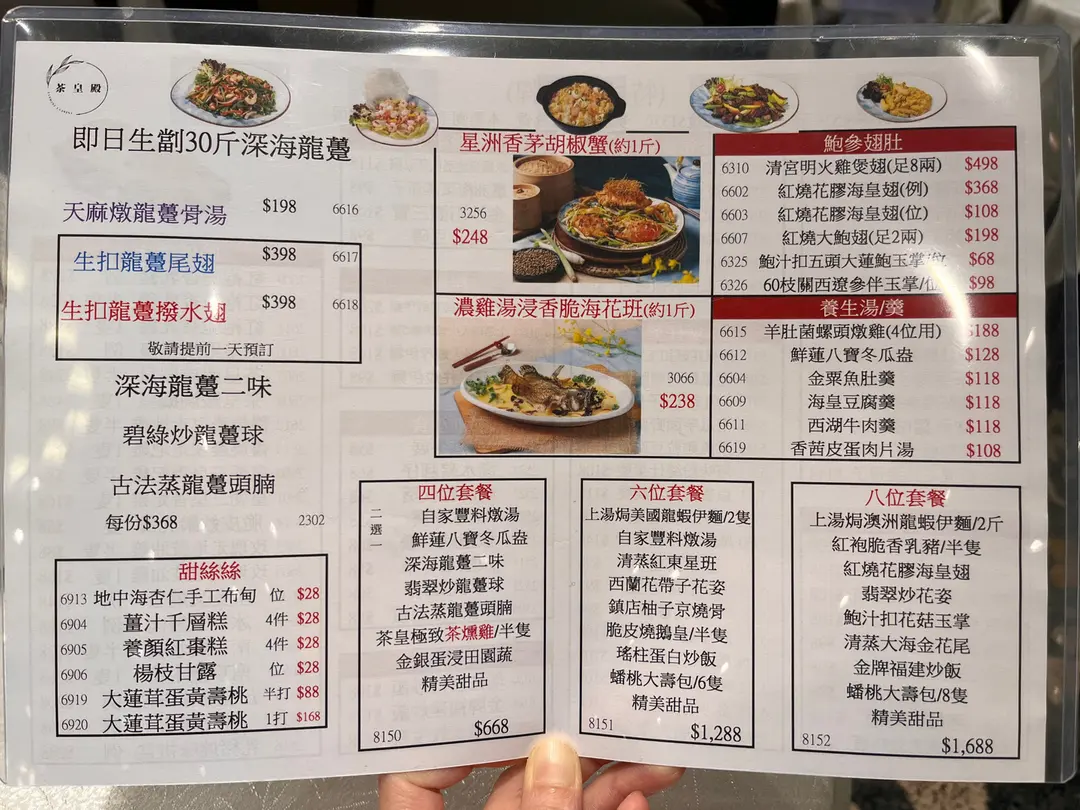 茶皇殿
即日生劏30斤深海龍躉
天麻燉龍躉骨湯 $198 6616
生扣龍躉尾翅 $398 6617
生扣龍躉撥水翅 $398 6618
敬請提前一天預訂
深海龍躉二味
碧綠炒龍躉球
古法蒸龍躉頭腩
每份$368 2302
甜絲絲
6913 地中海杏仁手工布甸 位 $28
6904 薑汁千層糕 4件 $28
6905 養顏紅棗糕 4件 $28
6906 楊枝甘露 位 $28
6919 大蓮茸蛋黃壽桃 半打 $88
6920 大蓮茸蛋黃壽桃 1打 $168
星洲香茅胡椒蟹(約1斤)
3256
$248
濃雞湯浸香脆海花班(約1斤)
3066
$238
鮑參翅肚
6310 清宮明火雞煲翅(足8兩) $498
6602 紅燒花膠海皇翅(例) $368
6603 紅燒花膠海皇翅(位) $108
6607 紅燒大鮑翅(足2兩) $198
6325 鮑汁扣五頭大蓮鮑玉掌/位 $68
6326 60枝關西遼參伴玉掌/位 $98
養生湯/羹
6615 羊肚菌螺頭燉雞(4位用) $188
6612 鮮蓮八寶冬瓜盅 $128
6604 金粟魚肚羹 $118
6609 海皇豆腐羹 $118
6611 西湖牛肉羹 $118
6619 香茜皮蛋肉片湯 $108
四位套餐
二選一
自家豐料燉湯
鮮蓮八寶冬瓜盅
深海龍躉二味
翡翠炒龍躉球
古法蒸龍躉頭腩
茶皇極致茶燻雞/半隻
金銀蛋浸田園蔬
精美甜品
8150 $668
六位套餐
上湯焗美國龍蝦伊麵/2隻
自家豐料燉湯
清蒸紅東星班
西蘭花帶子花姿
鎮店柚子京燒骨
脆皮燒鵝皇/半隻
瑤柱蛋白炒飯
蟠桃大壽包/6隻
精美甜品
8151 $1,288
八位套餐
上湯焗澳洲龍蝦伊麵/2斤
紅袍脆香乳豬/半隻
紅燒花膠海皇翅
翡翠炒花姿
鮑汁扣花菇玉掌
清蒸大海金花尾
金牌福建炒飯
蟠桃大壽包/8隻
精美甜品
8152 $1,688